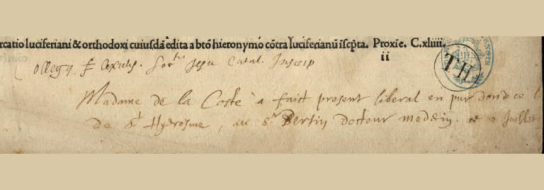 rcatio luciferani & orthodoxi cuiusdā edita a bto hieronymo cōtra luciferianū īscpta. Proxīe. C.xliiii.
ii
Collegij Societ. Jesu Catal. Inscrip
TH
Madame de la Coste a fait present liberal en pur don de ce l
de St Hyerosme, au Sr Bertin doctour medecin. ce